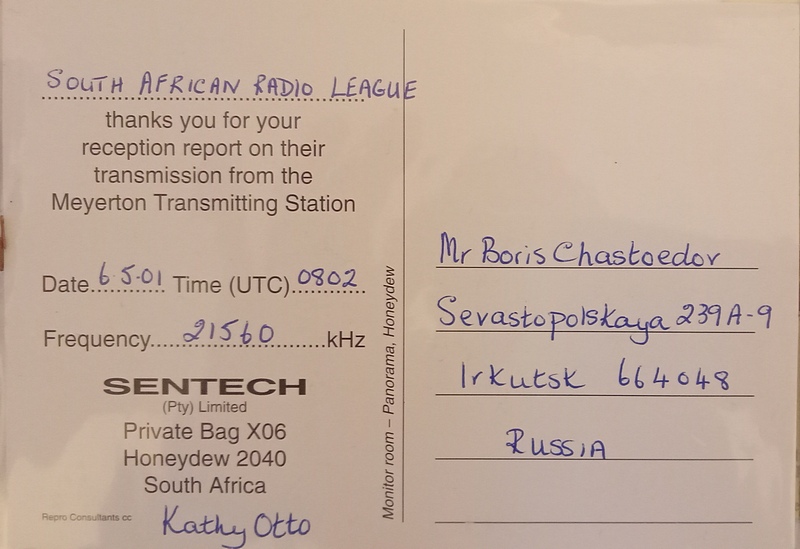 SOUTH AFRICAN RADIO LEAGUE
thanks you for your
reception report on their
transmission from the
Meyerton Transmitting Station
Date 6.5.01 Time (UTC) 0802
Frequency 21560 kHz
SENTECH
(Pty) Limited
Private Bag X06
Honeydew 2040
South Africa
Repro Consultants cc
Kathy Otto
Monitor room – Panorama, Honeydew
Mr Boris Chastoedov
Sevastopolskaya 239A-9
Irkutsk 664048
RUSSIA